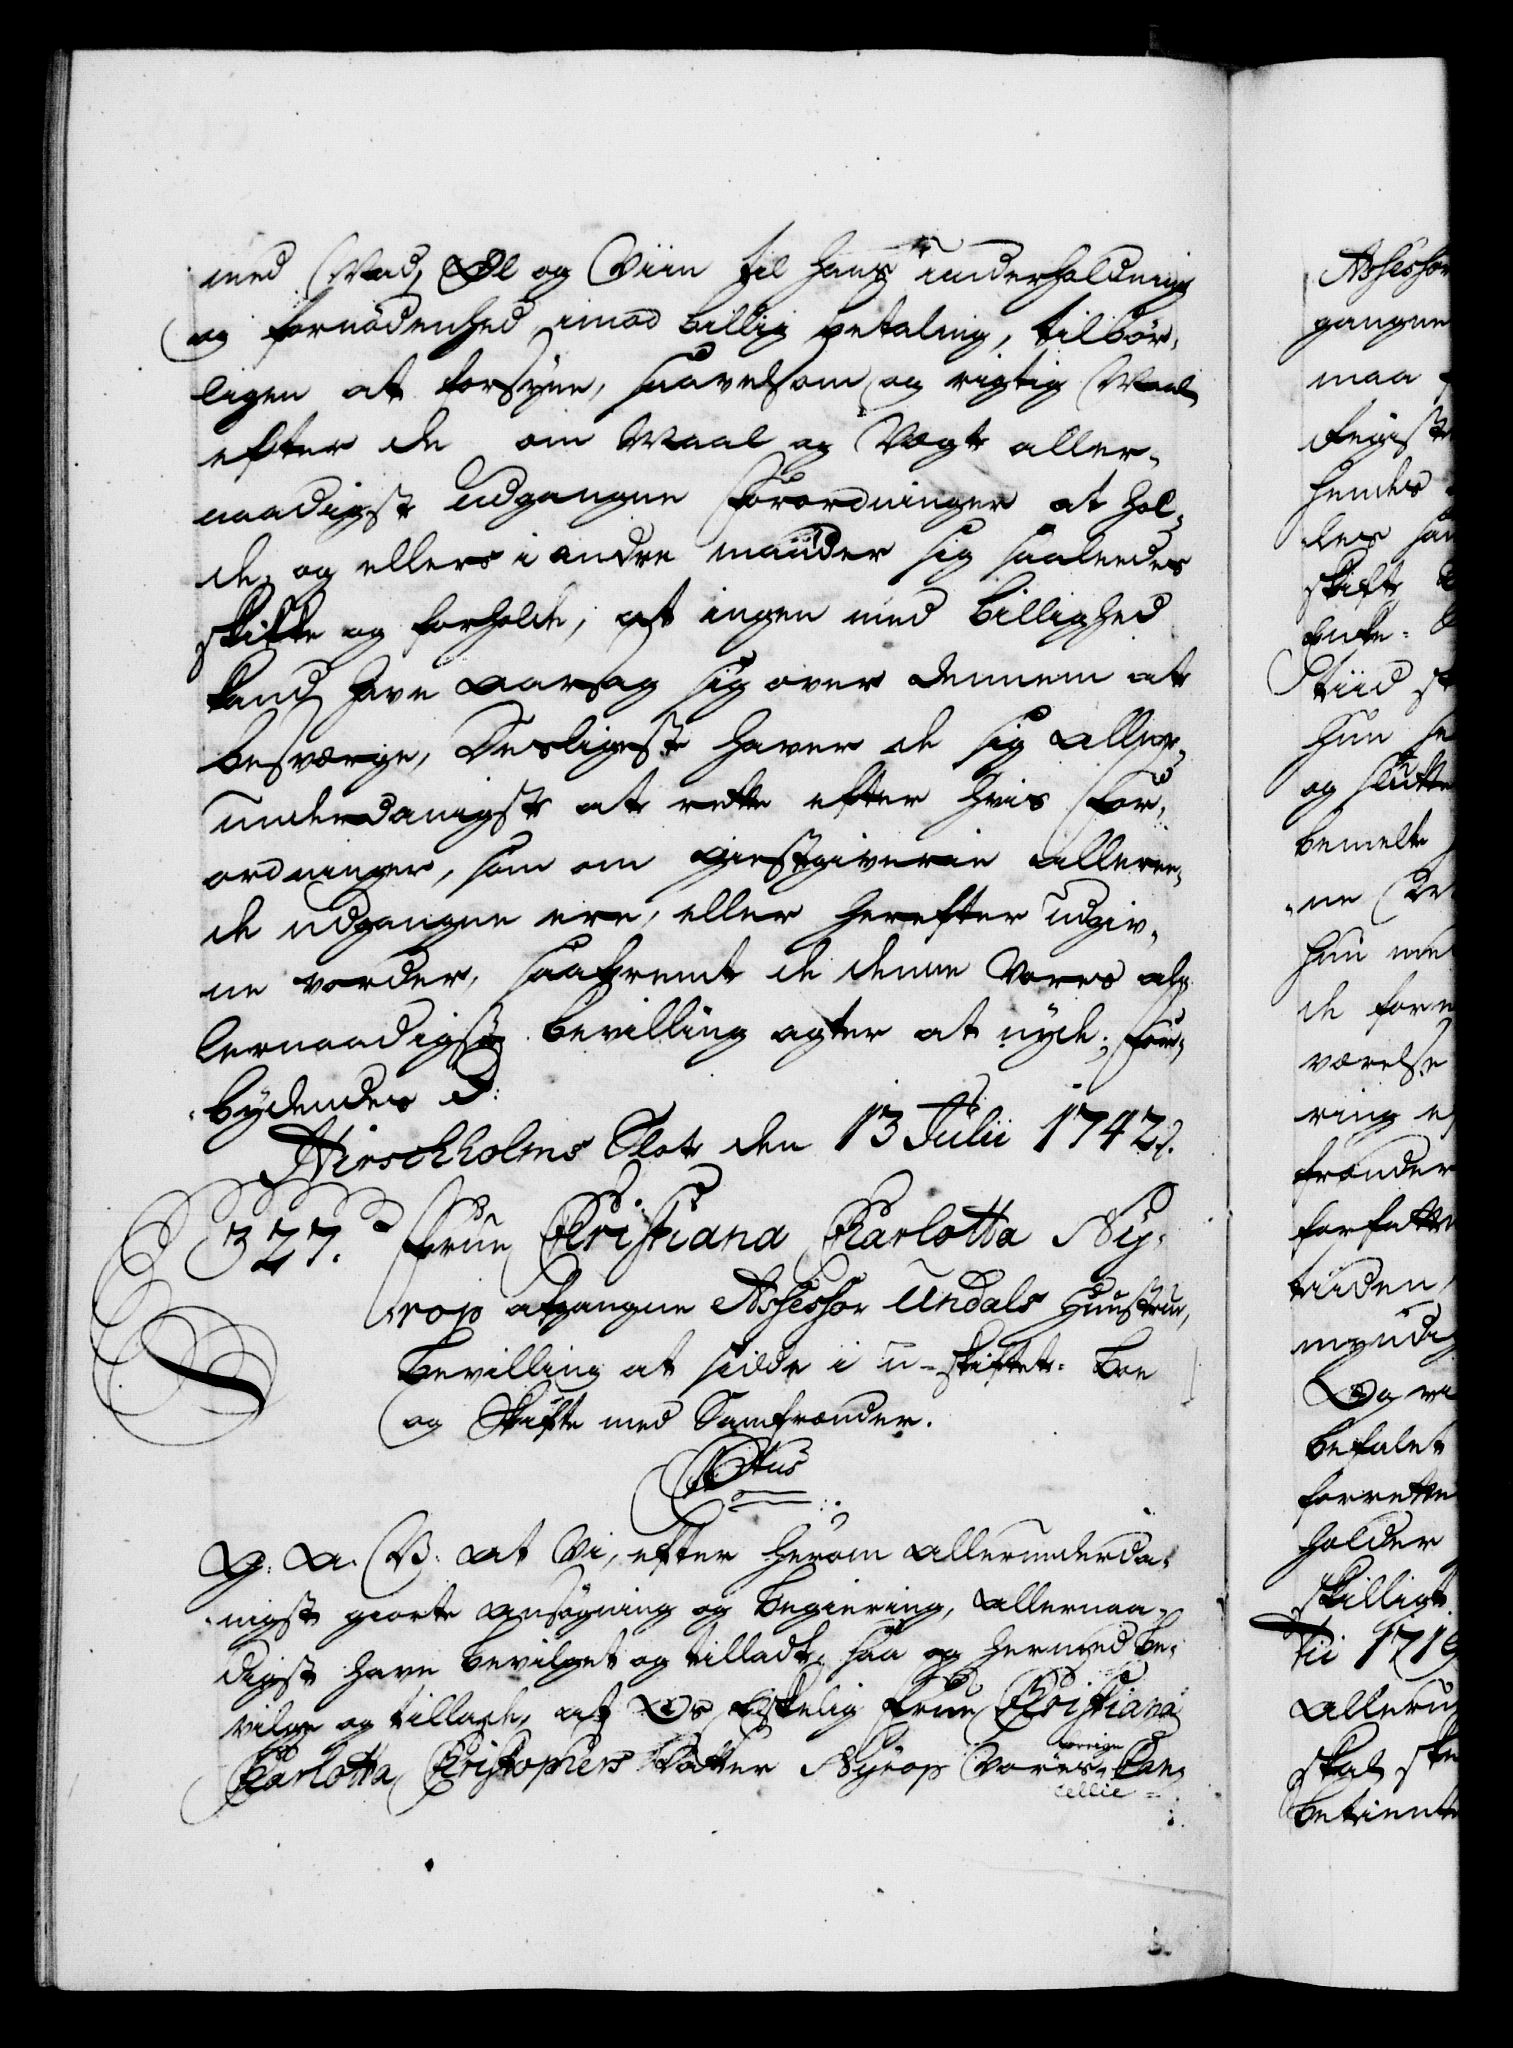 med Mad, Øl og Viin til hans underholdning
og fornødenhed imod billig betaling, tilbør-
ligen at forsyne, saavelsom og rigtig Maal
efter de om Maal og Vægt aller-
naadigst udgangne Forordninger at hol-
de, og ellers i andre maader sig saaledes
skikke og forholde, at ingen med billighed
kand have aarsag sig over dennem at
besværge, Desligeste haver de sig aller-
underdanigst at rette efter hvis For-
ordninger, som om giestgiverie alleree-
de udgangne ere, eller herefter udgiv-
ne vorder, saafremt de denne Vores al-
lernaadigste bevilling agter at nyde; For-
bydendes p:
Hirschholms Slot den 13 Julii 1742.
327. Frue Christiana Charlotta Ny-
rop afgangne Assessor Undals Huustrue,
bevilling at sidde i u-skiftet Boe
og Skifte med Samfrænder.
C 6tus
G. A. V. at Vi, efter herom allerunderda-
nigst giorte ansøgning og begiering, allernaa-
digst have bevilget og tilladt, saa og hermed be-
vilge og tillade, at Os Elskelig Frue Christiana
Charlotta Christophers Datter Nyrop Vores forrige Can-
cellie-
Assessor
gangne
maa
Regist
hendes
des sam
skifte
Enke-
tiid
hun
og slutte
bemelte
ne
hun me
de for
værelse
ring e
frænder
forfatte
tiiden
myndig
Og vi
befalet
forrette
holder
skilligt
tii 1719
alleru
skal ske
betiente